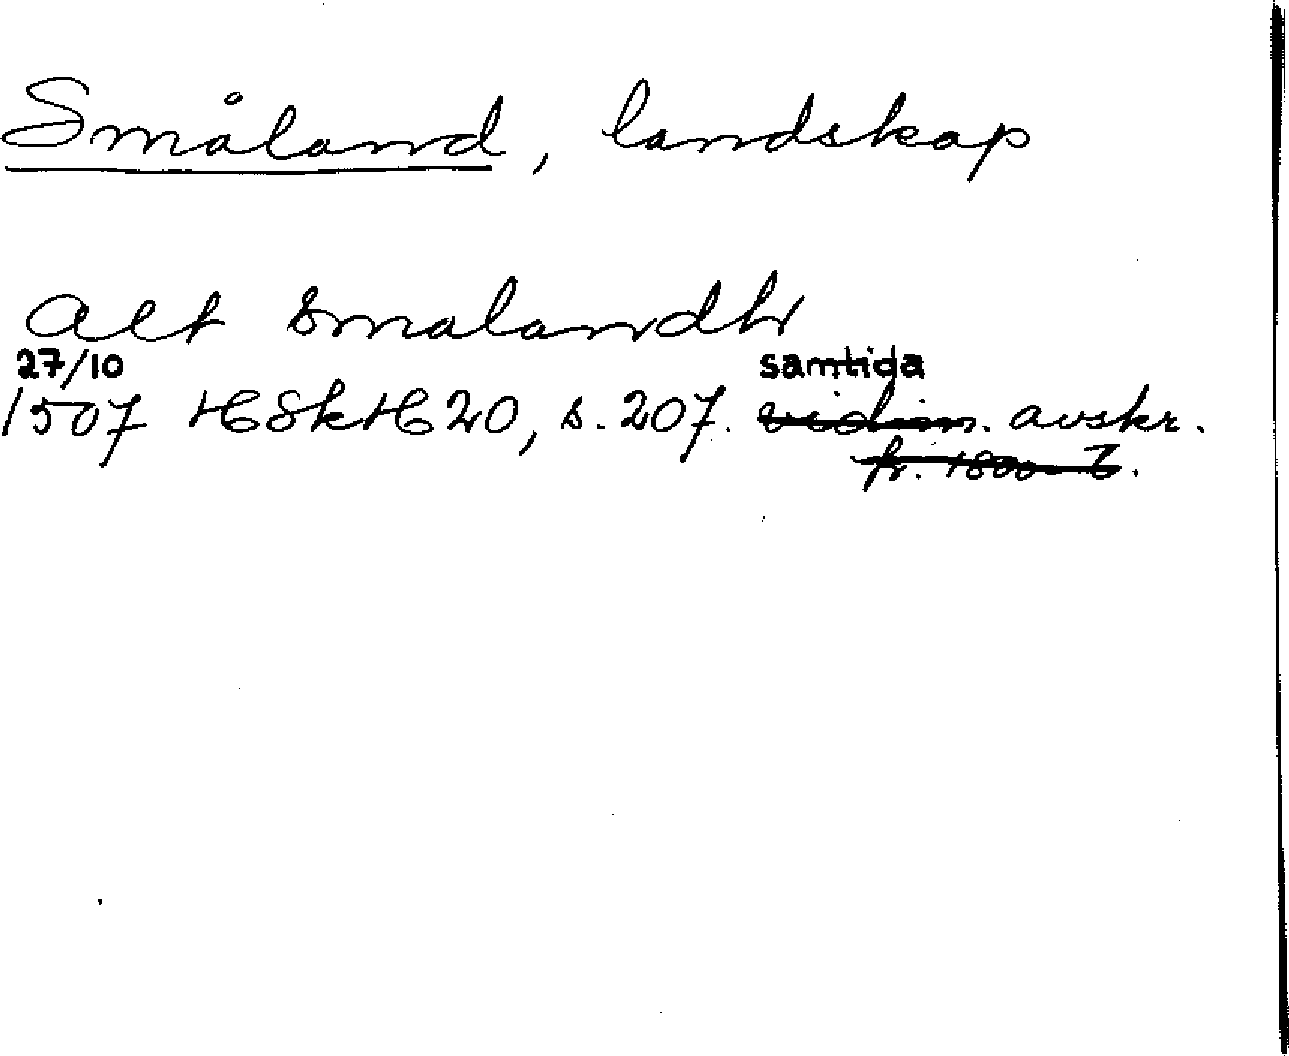 Småland, landskap
alt Smalandh
27/10 samtida
1507 HSkH 20, s. 207. vidim. avskr.
fr. 1800-t.